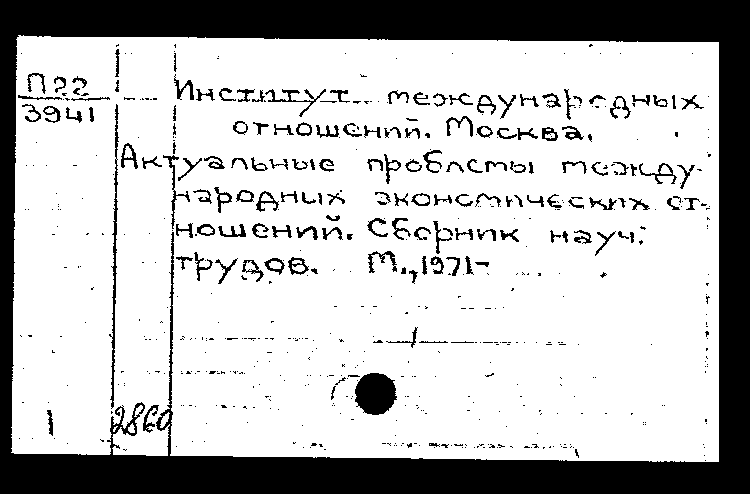 П22
3941
Институт международных
отношений. Москва.
Актуальные проблемы между-
народных экономических от-
ношений. Сборник науч.
трудов. М., 1971-
1 2860